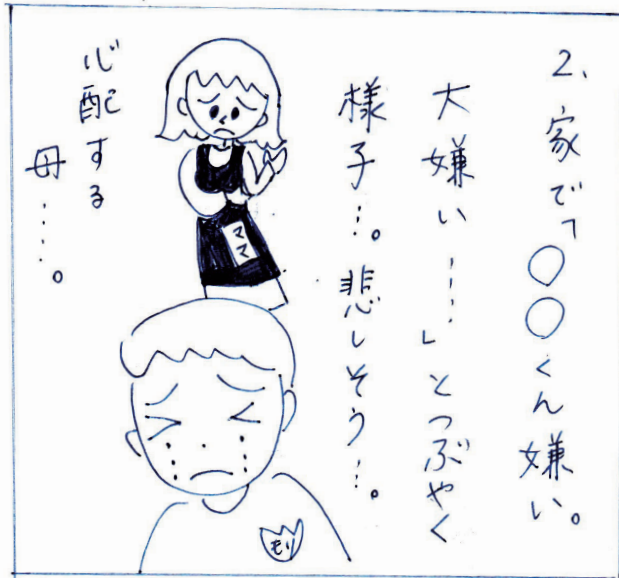 2、家で「〇〇くん嫌い。
大嫌い……」とつぶやく
様子…。悲しそう…。
心配する
母……。
ママ
もり